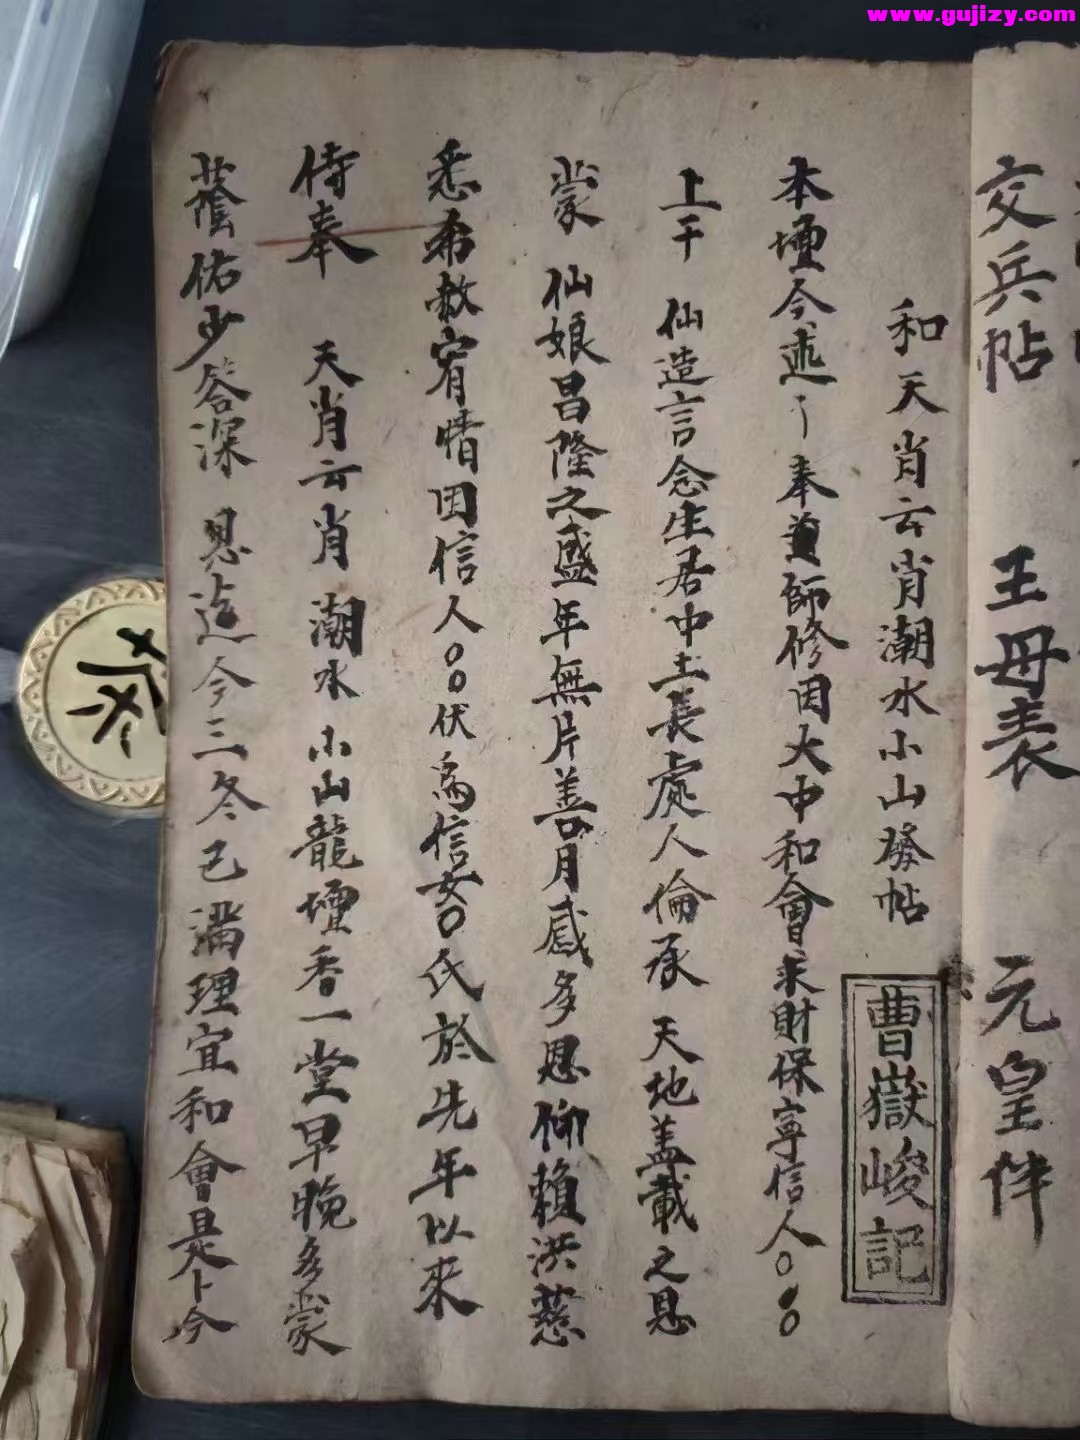 www.gujizy.com
交兵帖 王母表 元皇伴
和天肖云肖潮水小山發帖
曹嶽峻記
本壇今述丨奉首師修因大中和會求財保寧信人〇〇〇
上干 仙造言念生居中土長處人倫承 天地盖載之恩
蒙 仙娘昌隆之盛年無片善月感多恩仰賴洪慈
悉希赦宥情因信人〇〇伏為信女〇氏於先年以來
侍奉 天肖云肖潮水小山龍壇香一堂早晚多蒙
蔭佑少答深 恩迄今三冬已滿理宜和會是卜今